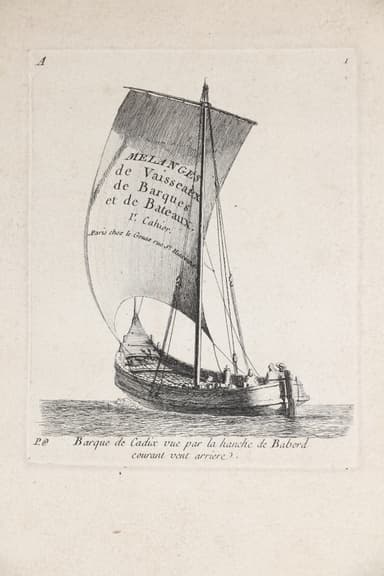 A 1
MELANGES
de Vaisseaux
de Barques
et de Bateaux.
1r. Cahier.
Paris chez le Gouaz rue St.
P.O
Barque de Cadix vue par la hanche de Babord
courant vent arriere.